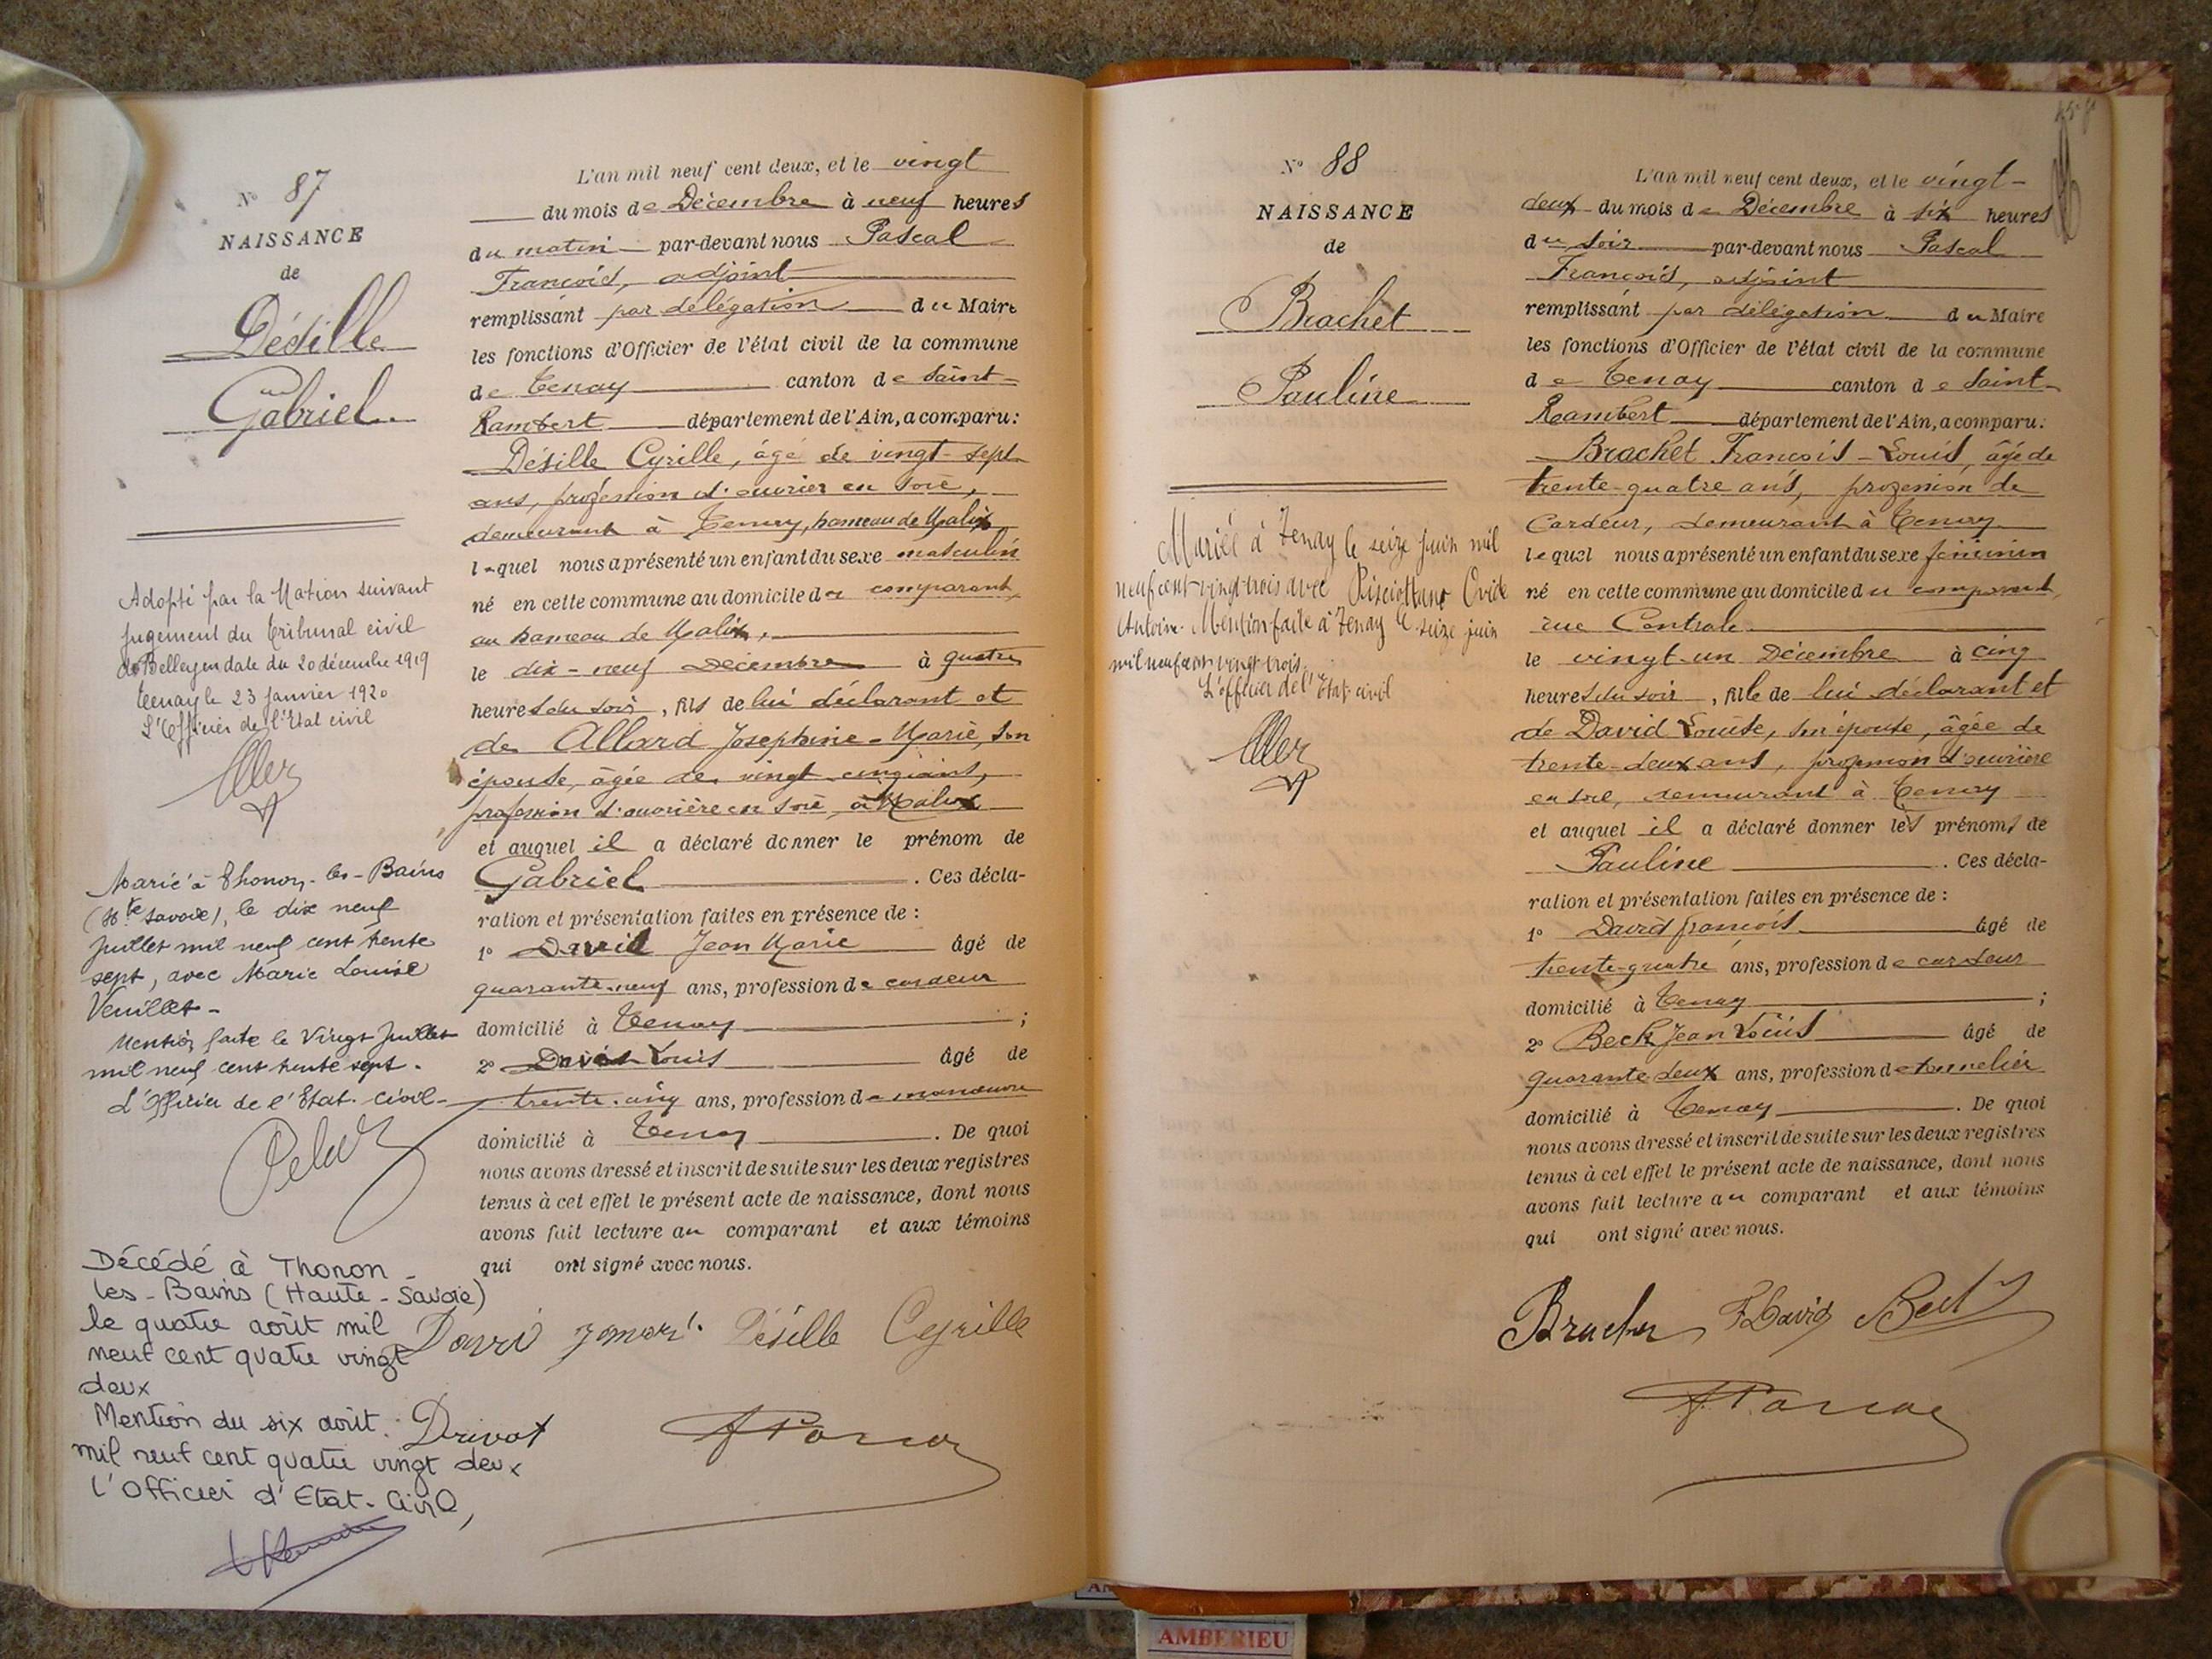 N° 87
NAISSANCE
de
Désille
Gabriel
Adopté par la Nation suivant
jugement du Tribunal civil
de Belley en date du 20 décembre 1919
Tenay le 23 Janvier 1920
L'Officier de l'Etat civil
Marié à Thonon-les-Bains
(Hte Savoie), le dix neuf
Juillet mil neuf cent trente
sept, avec Marie Louise
Veuillet -
Mention faite le Vingt Juillet
mil neuf cent trente sept.
L'Officier de l'Etat-civil -
Décédé à Thonon-
les-Bains (Haute-Savoie)
le quatre août mil
neuf cent quatre vingt
deux
Mention du six août
mil neuf cent quatre vingt deux
L'Officier d'Etat-Civil,
L'an mil neuf cent deux, et le vingt
du mois de Décembre à neuf heures
du matin par-devant nous Pascal
François, adjoint
remplissant par délégation du Maire
les fonctions d'Officier de l'état civil de la commune
de Tenay canton de Saint-
Rambert département de l'Ain, a comparu:
Désille Cyrille, âgé de vingt-sept
ans, profession d'ouvrier en soie,
demeurant à Tenay, hameau de Malix
lequel nous a présenté un enfant du sexe masculin
né en cette commune au domicile du comparant,
au hameau de Malix,
le dix-neuf Décembre à quatre
heures du soir, fils de lui déclarant et
de Allard Joséphine-Marie, son
épouse, âgée de vingt-cinq ans,
profession d'ouvrière en soie, à Malix
et auquel il a déclaré donner le prénom de
Gabriel. Ces décla-
ration et présentation faites en présence de :
1° David Jean Marie âgé de
quarante-neuf ans, profession de cardeur
domicilié à Tenay ;
2° Louis âgé de
trente-cinq ans, profession de manœuvre
domicilié à Tenay. De quoi
nous avons dressé et inscrit de suite sur les deux registres
tenus à cet effet le présent acte de naissance, dont nous
avons fait lecture au comparant et aux témoins
qui ont signé avec nous.
Désille Cyrille
N° 88
NAISSANCE
de
Brachet
Pauline
Mariée à Tenay le seize juin mil
neuf cent vingt-trois avec Ovide
Antoine. Mention faite à Tenay le seize juin
mil neuf cent vingt-trois.
L'officier de l'Etat-civil
L'an mil neuf cent deux, et le vingt-
deux du mois de Décembre à six heures
du soir par-devant nous Pascal
François, adjoint
remplissant par délégation du Maire
les fonctions d'Officier de l'état civil de la commune
de Tenay canton de Saint-
Rambert département de l'Ain, a comparu:
Brachet François-Louis, âgé de
trente-quatre ans, profession de
Cardeur, demeurant à Tenay
lequel nous a présenté un enfant du sexe féminin
né en cette commune au domicile du comparant,
rue Centrale
le vingt-un Décembre à cinq
heures du soir, fille de lui déclarant et
de David Louise, son épouse, âgée de
trente-deux ans, profession d'ouvrière
en soie, demeurant à Tenay
et auquel il a déclaré donner les prénoms de
Pauline. Ces décla-
ration et présentation faites en présence de :
1° David François âgé de
trente-quatre ans, profession de cardeur
domicilié à Tenay ;
2° Beck Jean Louis âgé de
quarante deux ans, profession de tonnelier
domicilié à Tenay. De quoi
nous avons dressé et inscrit de suite sur les deux registres
tenus à cet effet le présent acte de naissance, dont nous
avons fait lecture au comparant et aux témoins
qui ont signé avec nous.
F. David Beck
AMBERIEU